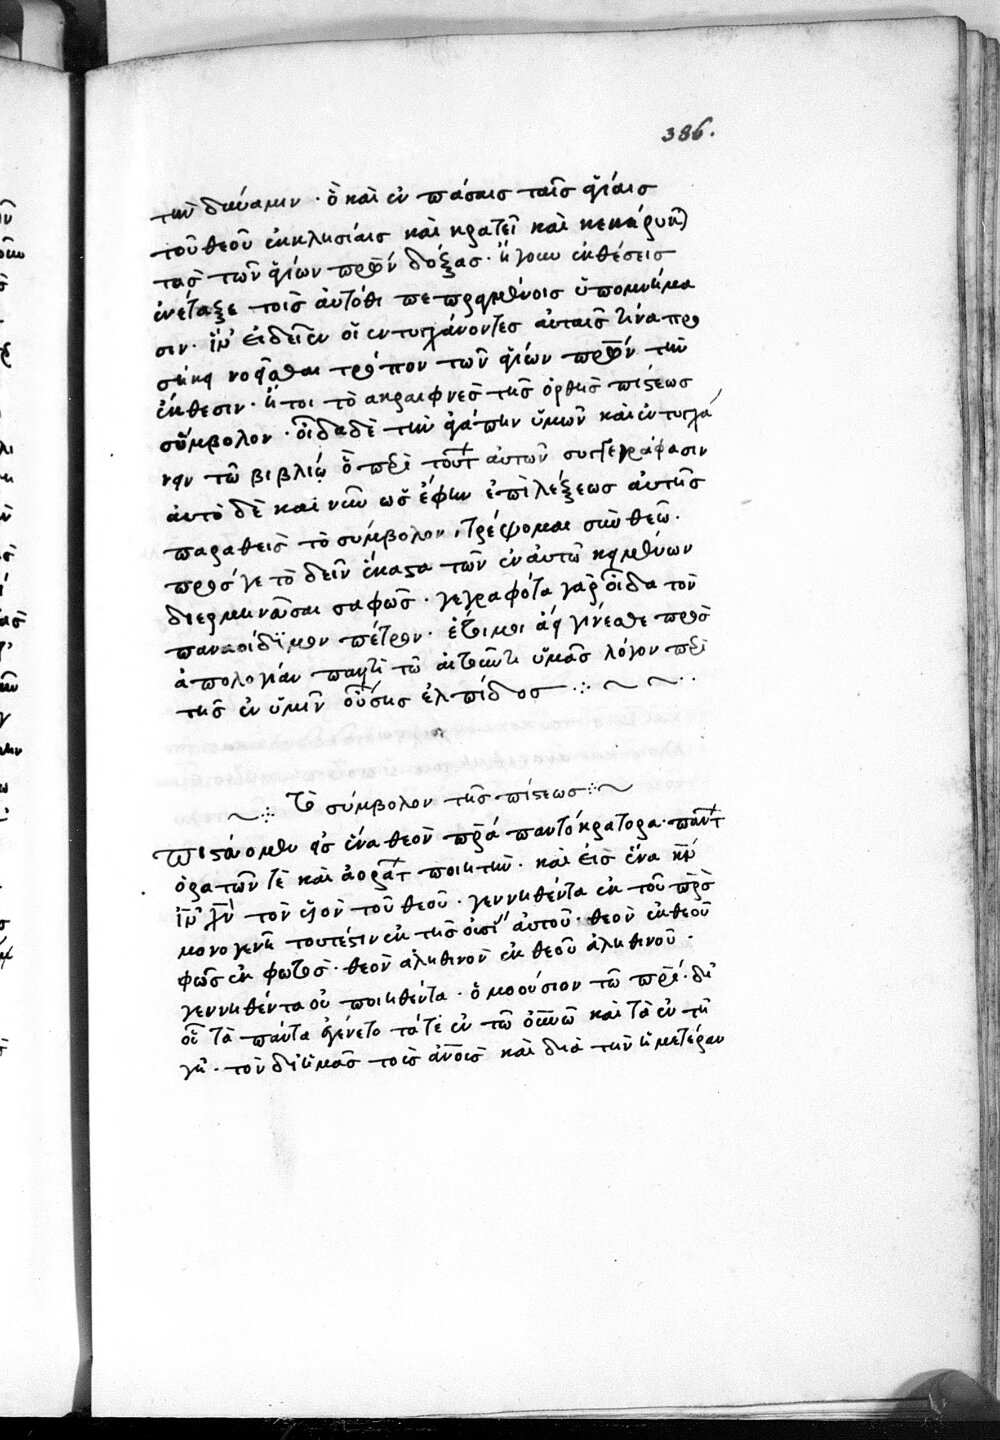 386.
τὴν δύναμιν · ὃ καὶ ἐν πάσαις ταῖς ἁγίαις
τοῦ θεοῦ ἐκκλησίαις καὶ κρατεῖ καὶ κεκήρυκ)
τὰς τῶν ἁγίων πρων δόξας · ἤγουν ἐκθέσεις
ἐνέταξε τοῖς αὐτόθι πεπραγμένοις ὑπομνήμα
σιν · ἵν' εἰδεῖεν οἱ ἐντυγχάνοντες αὐταῖς τίνα προ
σήκει νοεῖσθαι τρόπον τῶν ἁγίων πρων τὴν
ἔκθεσιν · ἤτοι τὸ ἀκραιφνὲς τῆς ὀρθῆς πίστεως
σύμβολον · οἶδα δὲ τὴν ἀγάπην ὑμῶν καὶ ἐντυχεῖν
τῶ βιβλίω ὃ περὶ τούτ αὐτῶν συγγεγράφασιν
αὐτὸ δὲ καὶ νῦν ὡς ἔφην ἐπὶ λέξεως αὐτῆς
παραθεὶς τὸ σύμβολον, τρέψομαι σὺν θεῶ ·
πρός γε τὸ δεῖν ἕκαστα τῶν ἐν αὐτῶ κειμένων
διερμηνεῦσαι σαφῶς · γεγραφότα γὰρ οἶδα τὸν
παναοίδιμον πέτρον · ἕτοιμοι ἀεὶ γίνεσθε πρὸς
ἀπολογίαν παντὶ τῶ αἰτοῦντι ὑμᾶς λόγον περὶ
τῆς ἐν ὑμῖν οὔσης ἐλπίδος
Τὸ σύμβολον τῆς πίστεως
Πιστεύομεν εἰς ἕνα θεὸν πρα παντοκράτορα · πάντ
ὁρατῶν τὲ καὶ ἀοράτ ποιητήν · καὶ εἰς ἕνα κν
ιν χν τὸν υἱὸν τοῦ θεοῦ · γεννηθέντα ἐκ τοῦ πρς
μονογενῆ τουτέστιν ἐκ τῆς οὐσί αὐτοῦ · θεὸν ἐκ θεοῦ
φῶς ἐκ φωτὸς · θεὸν ἀληθινὸν ἐκ θεοῦ ἀληθινοῦ ·
γεννηθέντα οὐ ποιηθέντα · ὁμοούσιον τῶ πρί · δι'
οὗ τὰ πάντα ἐγένετο τά τε ἐν τῶ οὐνῶ καὶ τὰ ἐν τῆ
γῆ · τὸν δι' ἡμᾶς τοὺς ἀνους καὶ διὰ τὴν ἡμετέραν